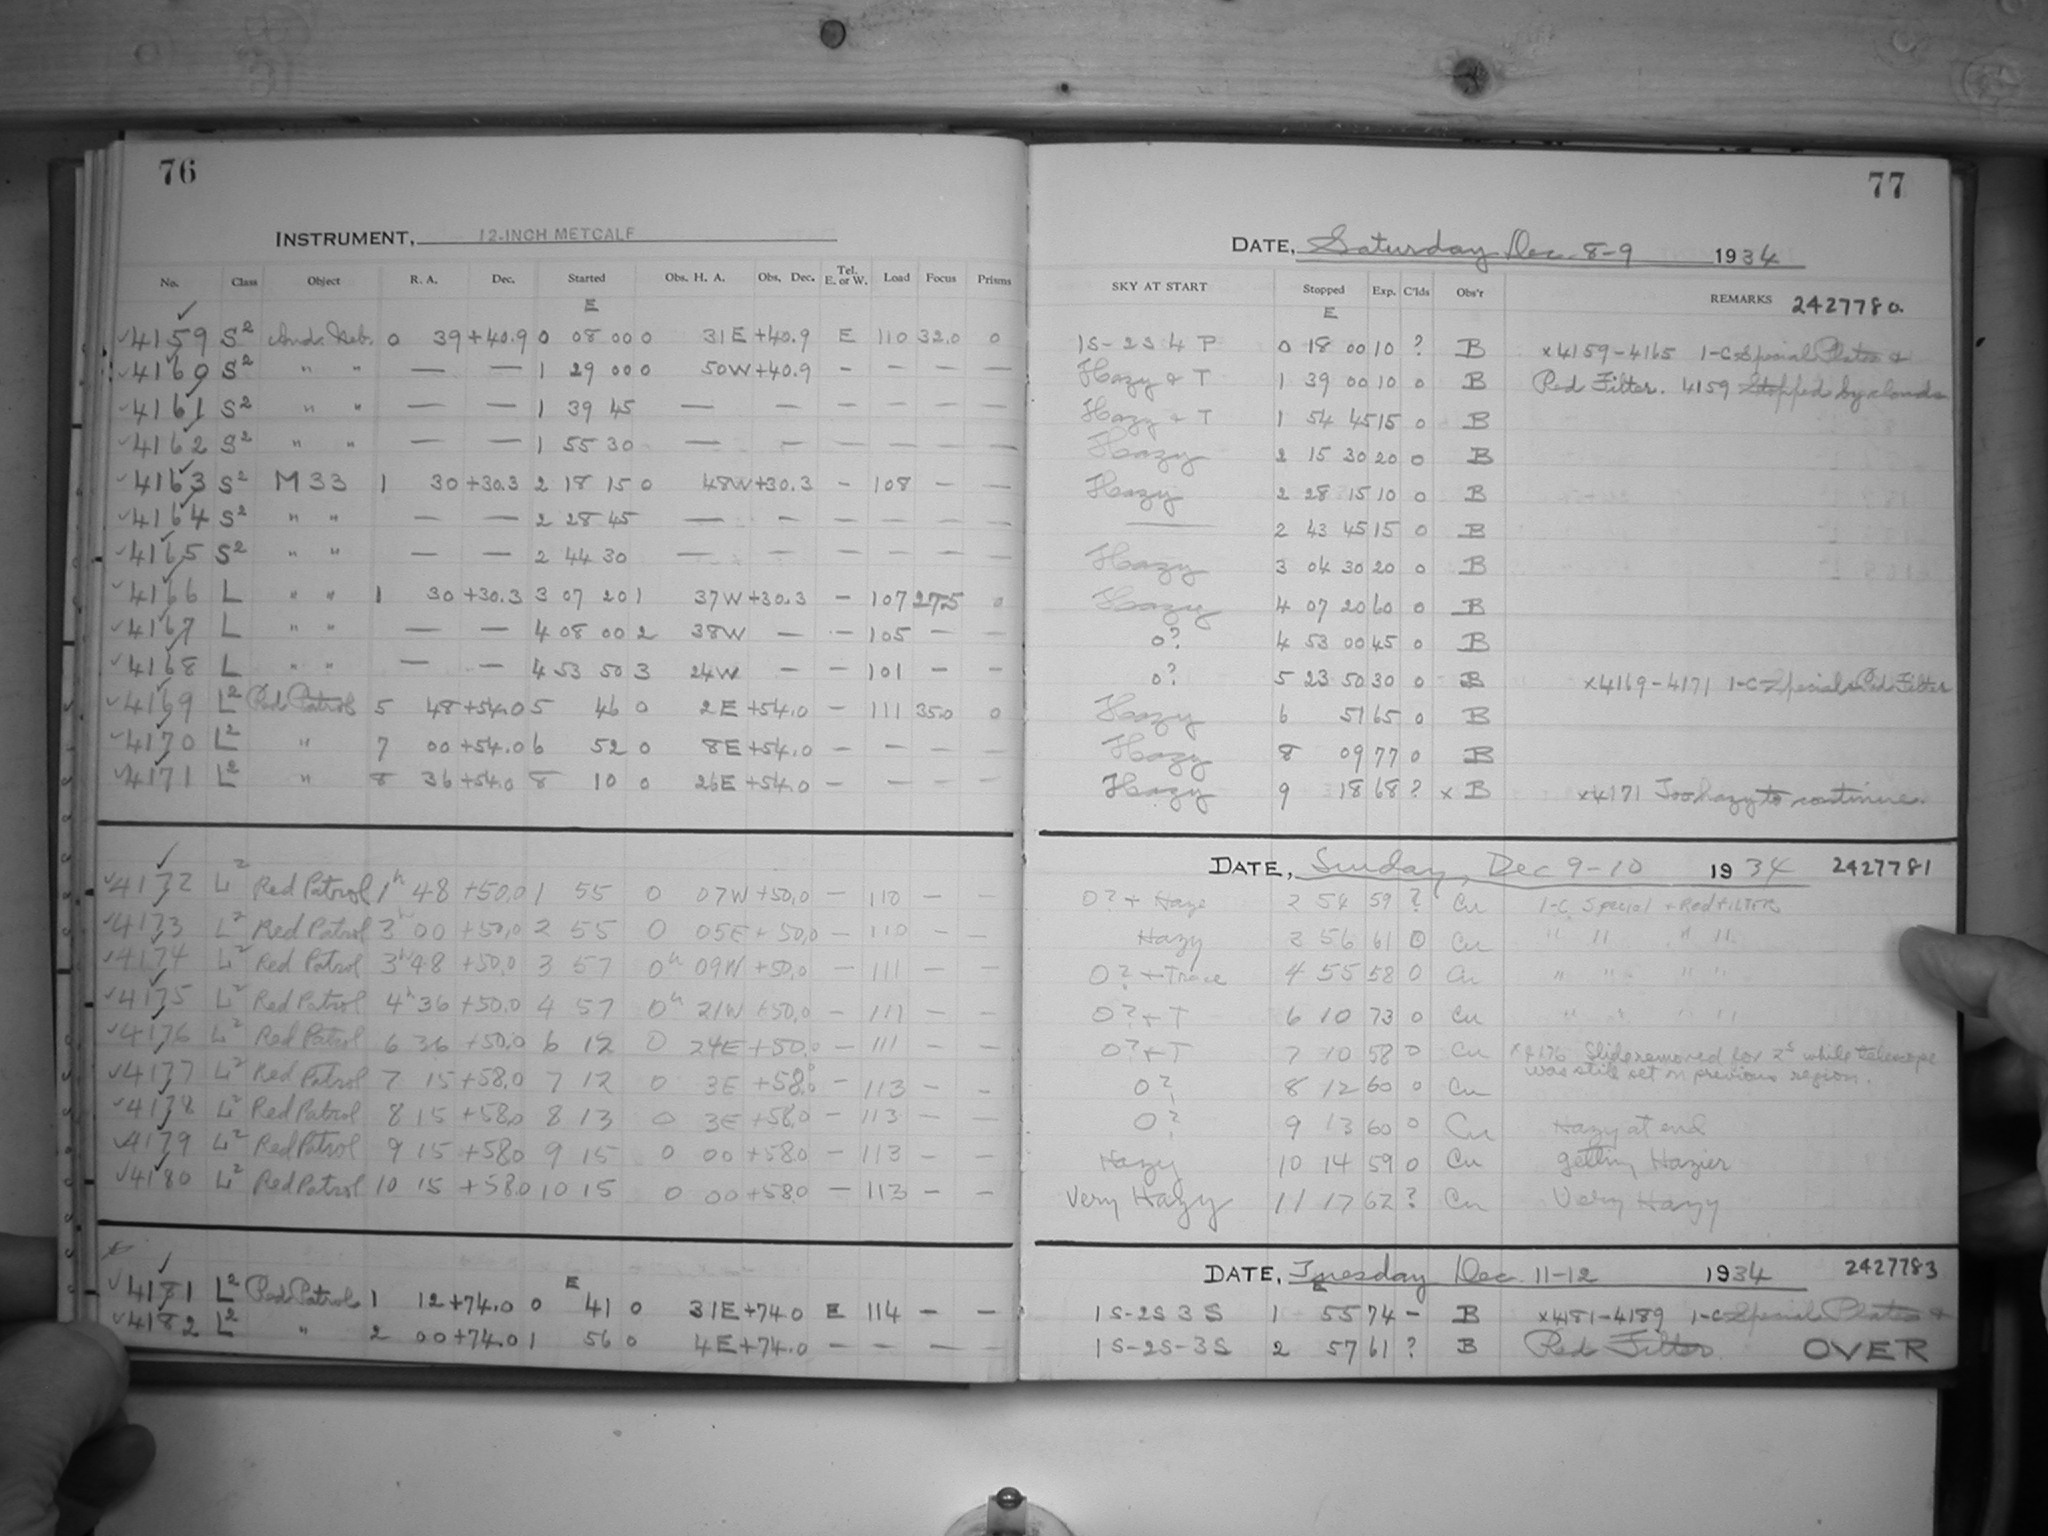 76
INSTRUMENT, 12-INCH METCALF
No. Class Object R. A. Dec. Started Obs. H. A. Obs. Dec. Tel. E. or W. Load Focus Prisms
E
4159 S2 And. Neb. 0 39 +40.9 0 08 00 0 31E +40.9 E 110 32.0 0
4160 S2 " " — — 1 29 00 0 50W +40.9 - - - -
4161 S2 " " — — 1 39 45 — - - - - -
4162 S2 " " — — 1 55 30 — - - - - -
4163 S2 M33 1 30 +30.3 2 18 15 0 48W +30.3 - 108 - -
4164 S2 " " — — 2 28 45 — - - - - -
4165 S2 " " — — 2 44 30 — - - - - -
4166 L " " 1 30 +30.3 3 07 20 1 37W +30.3 - 107 27.5 0
4167 L " " — — 4 08 00 2 38W — - 105 - -
4168 L " " — — 4 53 50 3 24W - - 101 - -
4169 L2 Red Patrol 5 48 +54.0 5 46 0 2E +54.0 - 111 35.0 0
4170 L2 " 7 00 +54.0 6 52 0 8E +54.0 - - - -
4171 L2 " 8 36 +54.0 8 10 0 26E +54.0 - - - -
4172 L2 Red Patrol 1h 48 +50.0 1 55 0 07W +50.0 - 110 - -
4173 L2 Red Patrol 3h 00 +50.0 2 55 0 05E +50.0 - 110 - -
4174 L2 Red Patrol 3h 48 +50.0 3 57 0h 09W +50.0 - 111 - -
4175 L2 Red Patrol 4h 36 +50.0 4 57 0h 21W +50.0 - 111 - -
4176 L2 Red Patrol 6 36 +50.0 6 12 0 24E +50.0 - 111 - -
4177 L2 Red Patrol 7 15 +58.0 7 12 0 3E +58.0 - 113 - -
4178 L2 Red Patrol 8 15 +58.0 8 13 0 3E +58.0 - 113 - -
4179 L2 Red Patrol 9 15 +58.0 9 15 0 00 +58.0 - 113 - -
4180 L2 Red Patrol 10 15 +58.0 10 15 0 00 +58.0 - 113 - -
E
4181 L2 Red Patrol 1 12 +74.0 0 41 0 31E +74.0 E 114 - -
4182 L2 " 2 00 +74.0 1 56 0 4E +74.0 - - - -
77
DATE, Saturday Dec. 8-9 1934
SKY AT START Stopped Exp. C'lds Obs'r REMARKS 2427780.
E
1S-2S 4 P 0 18 00 10 ? B x4159-4165 1-C Special Plates &
Hazy & T 1 39 00 10 0 B Red Filter. 4159 Stopped by clouds
Hazy & T 1 54 45 15 0 B
Hazy 2 15 30 20 0 B
Hazy 2 28 15 10 0 B
— 2 43 45 15 0 B
Hazy 3 04 30 20 0 B
Hazy 4 07 20 60 0 B
0? 4 53 00 45 0 B
0? 5 23 50 30 0 B x4169-4171 1-C Special & Red Filter
Hazy 6 51 65 0 B
Hazy 8 09 77 0 B
Hazy 9 18 68 ? x B x4171 Too hazy to continue.
DATE, Sunday, Dec 9-10 1934 2427781
0? + Haze 2 54 59 ? Cu 1-C Special + Red FILTER
Hazy 3 56 61 0 Cu " " " "
0? + Trace 4 55 58 0 Cu " " " "
0? + T 6 10 73 0 Cu " " " "
0? + T 7 10 58 0 Cu x4176 Slide removed for 2s while telescope
was still set on previous region.
0? 8 12 60 0 Cu
0? 9 13 60 0 Cu Hazy at end
Hazy 10 14 59 0 Cu getting Hazier
Very Hazy 11 17 62 ? Cu Very Hazy
DATE, Tuesday Dec. 11-12 1934 2427783
E
1S-2S 3 S 1 55 74 - B x4181-4189 1-C Special Plates &
1S-2S-3S 2 57 61 ? B Red Filter OVER